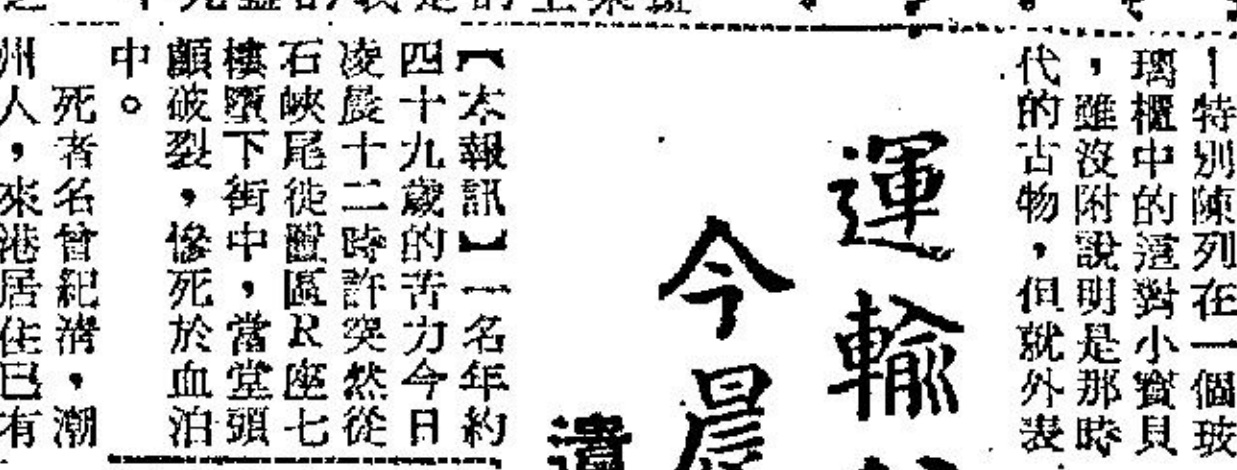 ｜特別陳列在一個玻
璃櫃中的這對小寶貝
，雖沒附說明是那時
代的古物，但就外表
運輸
今晨
遺
【本報訊】一名年約
四十九歲的苦力今日
凌晨十二時許突然從
石峽尾徙置區R座七
樓墮下街中，當堂頭
顱破裂，慘死於血泊
中。
死者名曾紀清，潮
州人，來港居住已有